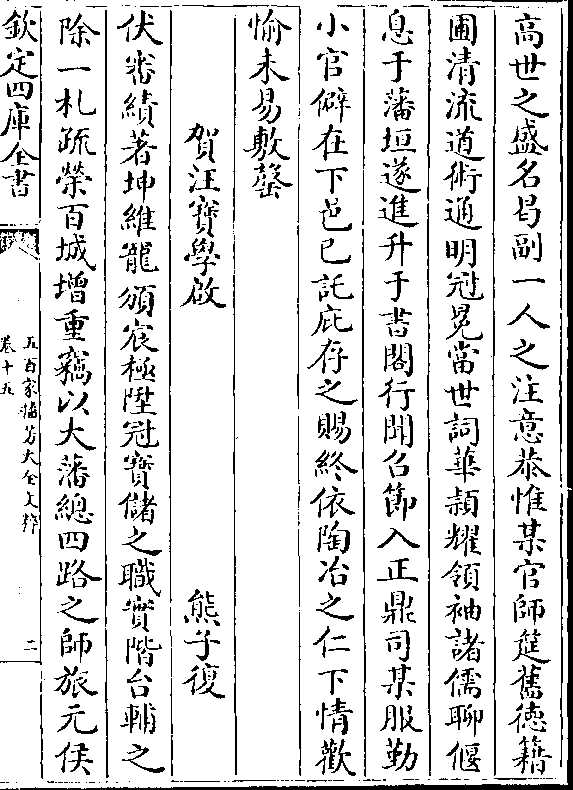 高世之盛名曷副一人之注意恭惟某官師筵舊徳籍
圃清流道術通明冠冕當世詞華頴耀領袖諸儒聊偃
息于藩垣遂進升于書閣行聞召節入正鼎司某服勤
小官僻在下邑已託庇存之賜終依陶冶之仁下情歡
愉未易敷罄
賀汪寳學啟
熊子復
伏審績著坤維寵頒宸極陞冠寳儲之職實階台輔之
除一札疏榮百城增重竊以大藩總四路之師旅元侯
欽定四庫全書
五百家播芳大全文粹
卷十五
二